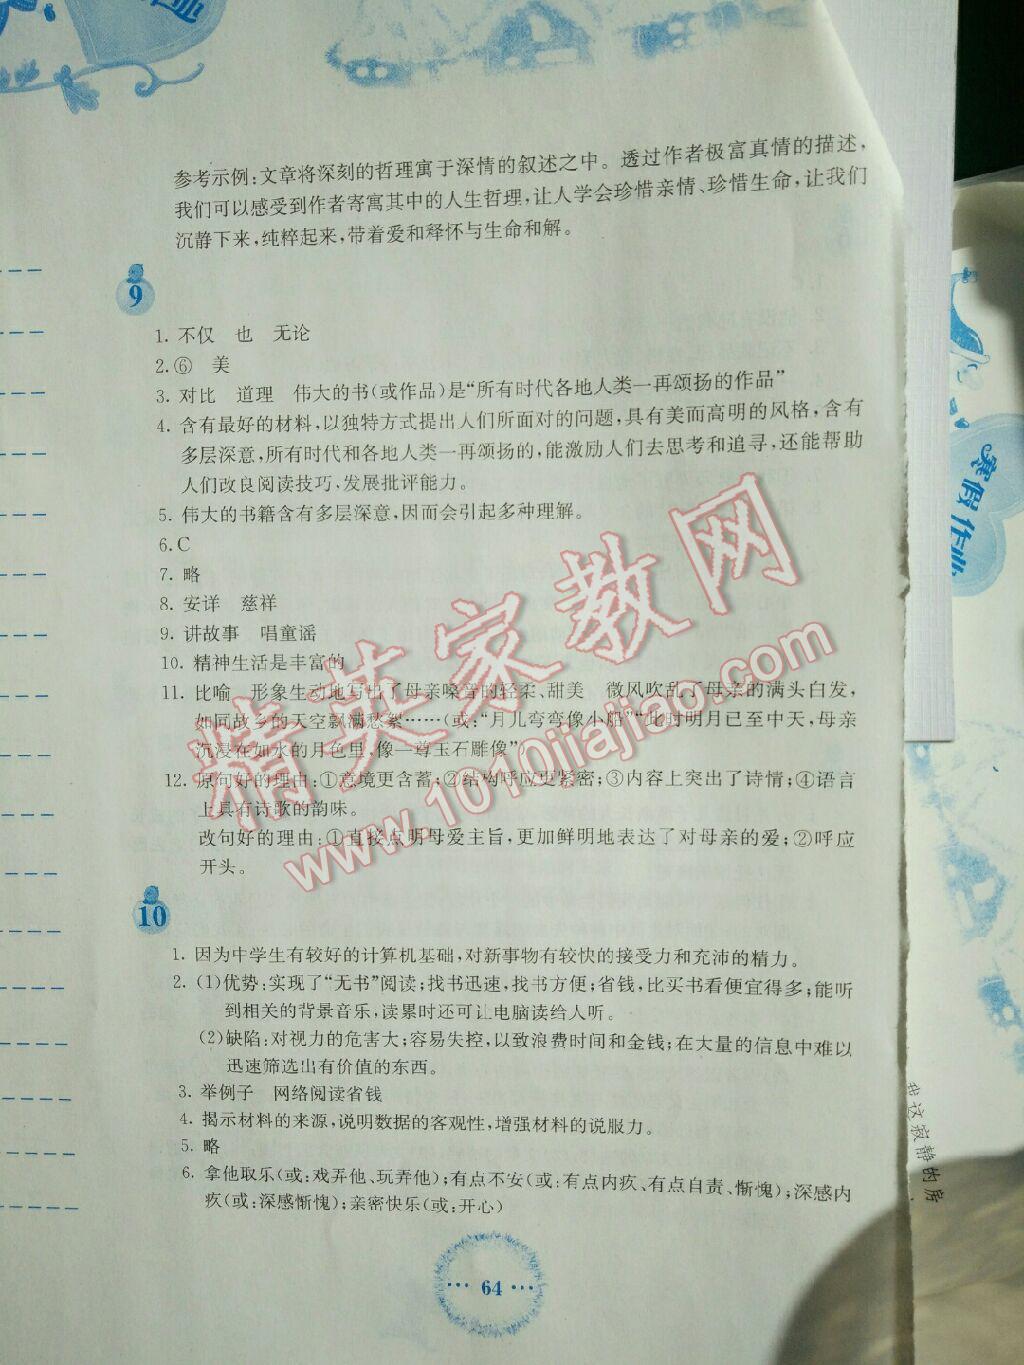 业
参考示例:文章将深刻的哲理寓于深情的叙述之中。透过作者极富真情的描述,
我们可以感受到作者寄寓其中的人生哲理,让人学会珍惜亲情、珍惜生命,让我们
沉静下来,纯粹起来,带着爱和释怀与生命和解。
9
1. 不仅 也 无论
2. ⑥ 美
3. 对比 道理 伟大的书(或作品)是“所有时代各地人类一再颂扬的作品”
4. 含有最好的材料,以独特方式提出人们所面对的问题,具有美而高明的风格,含有
多层深意,所有时代和各地人类一再颂扬的,能激励人们去思考和追寻,还能帮助
人们改良阅读技巧,发展批评能力。
5. 伟大的书籍含有多层深意,因而会引起多种理解。
6. C
7. 略
8. 安详 慈祥
9. 讲故事 唱童谣
10. 精神生活是丰富的
11. 比喻 形象生动地写出了母亲嗓音的轻柔、甜美 微风吹乱了母亲的满头白发,
如同故乡的天空飘满愁絮……(或:“月儿弯弯像小船”“此时明月已至中天,母亲
沉浸在如水的月色里,像一尊玉石雕像”)
12. 原句好的理由:①意境更含蓄;②结构呼应更紧密;③内容上突出了诗情;④语言
上具有诗歌的韵味。
改句好的理由:①直接点明母爱主旨,更加鲜明地表达了对母亲的爱;②呼应
开头。
10
1. 因为中学生有较好的计算机基础,对新事物有较快的接受力和充沛的精力。
2. (1)优势:实现了“无书”阅读;找书迅速,找书方便;省钱,比买书看便宜得多;能听
到相关的背景音乐,读累时还可让电脑读给人听。
(2)缺陷:对视力的危害大;容易失控,以致浪费时间和金钱;在大量的信息中难以
迅速筛选出有价值的东西。
3. 举例子 网络阅读省钱
4. 揭示材料的来源,说明数据的客观性,增强材料的说服力。
5. 略
6. 拿他取乐(或:戏弄他、玩弄他);有点不安(或:有点内疚、有点自责、惭愧);深感内
疚(或:深感惭愧);亲密快乐(或:开心)
64
寒假作业
我这寂静的房
精英家教网
www.1010jiajiao.com